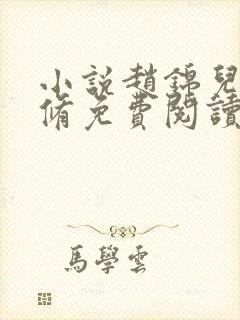 小說趙錦兒
脩免費閱讀
馬學雲